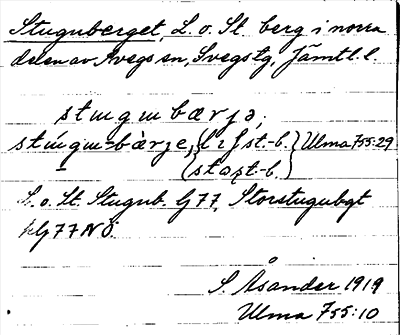 Stuguberget, L. o. St. berg i norra
delen av Svegs sn, Svegs tg, Jämtl. l.
stugubærjə,
stúgu-bàrje, {lɪʃst.-b.} Ulma 755:29
{stoʂt.-b.}
L. o. St. Stugub. Gj 77, Storstugubgt
kGj 77 NÖ.
S. Åsander 1919
Ulma 755:10